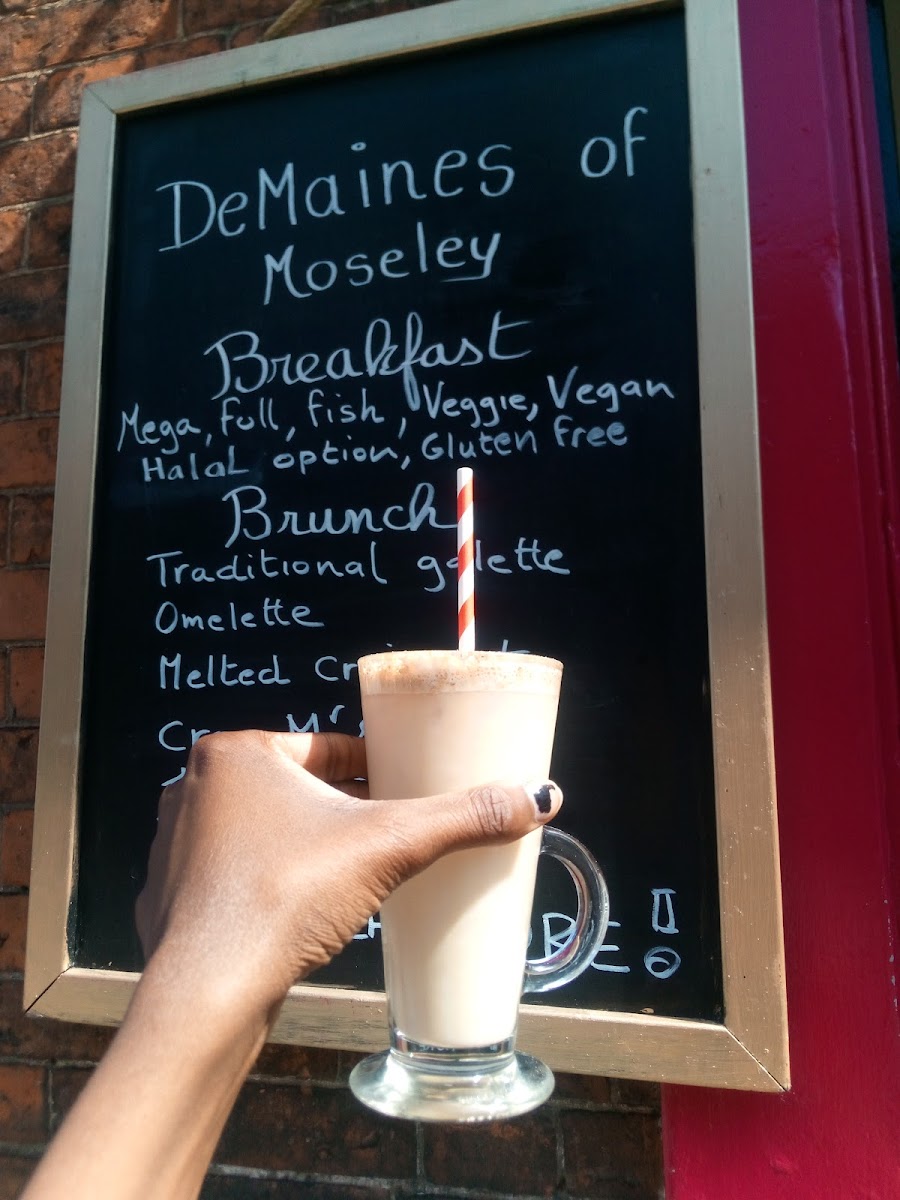 DeMaines of
Moseley
Breakfast
Mega, full, fish, Veggie, Vegan
Halal option, Gluten free
Brunch
Traditional galette
Omelette
Melted
!